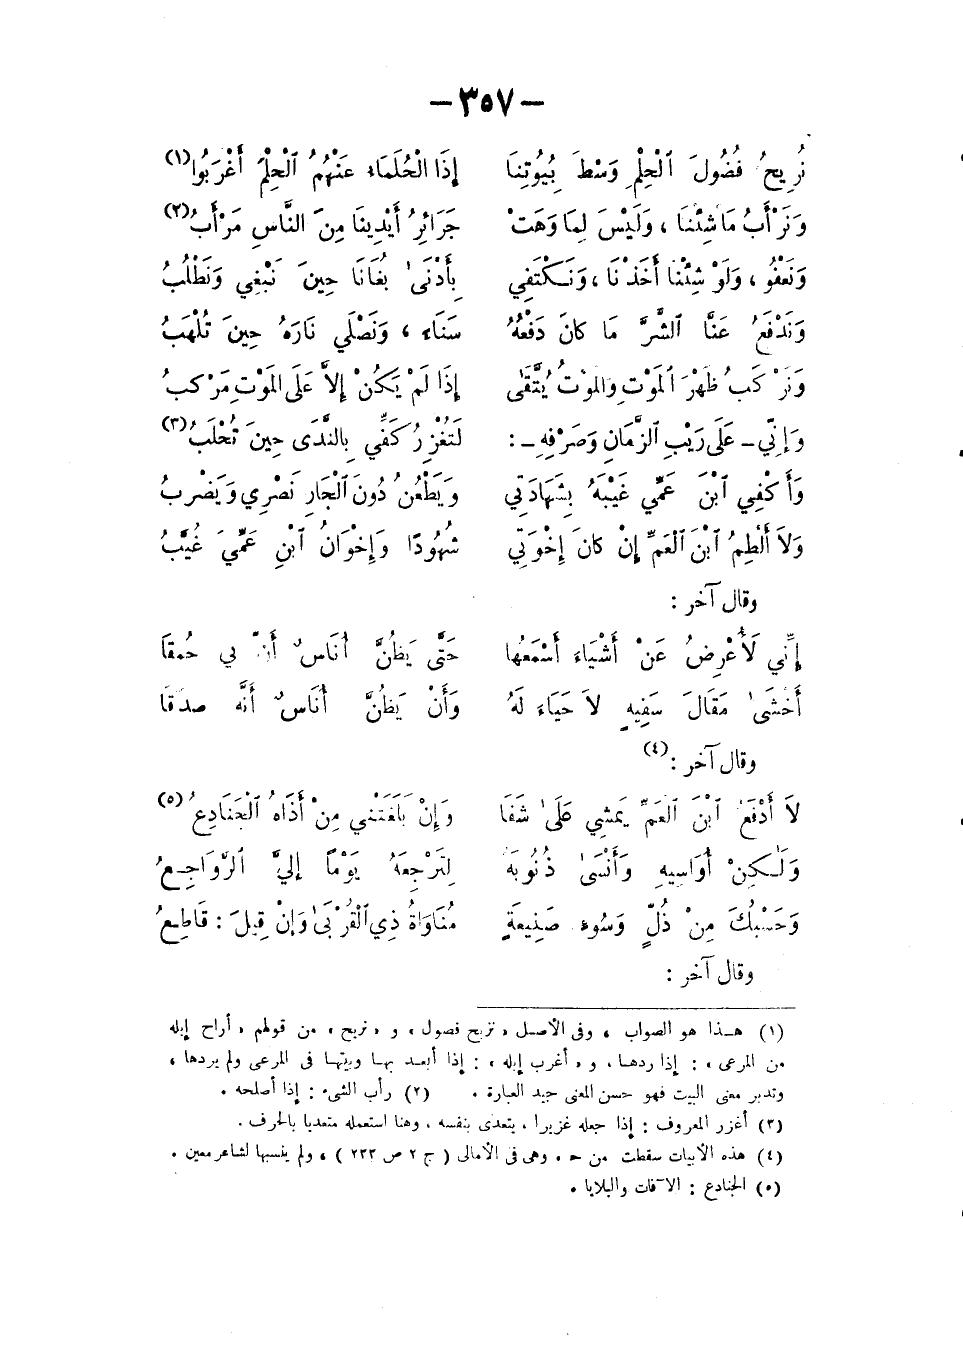 — ٣٥٧ —
نُرِيحُ فُضُولَ الْحِلْمِ وَسْطَ بُيُوتِنَا إِذَا الْحُلَمَاءُ عَنْهُمُ الْحِلْمَ أَغْرَبُوا (١)
وَنَرْأَبُ مَا شِئْنَا ، وَلَيْسَ لِمَا وَهَتْ جَرَائِرُ أَيْدِينَا مِنَ النَّاسِ مَرْأَبُ (٢)
وَنَعْفُو ، وَلَوْ شِئْنَا أَخَذْنَا ، وَنَكْتَفِي بِأَدْنَى بُغَانَا حِينَ نَبْغِي وَنَطْلُبُ
وَنَدْفَعُ عَنَّا الشَّرَّ مَا كَانَ دَفْعُهُ سَنَاءً ، وَنَصْلَي نَارَهُ حِينَ تُلْهَبُ
وَنَرْكَبُ ظَهْرَ الْمَوْتِ وَالْمَوْتُ يُتَّقَى إِذَا لَمْ يَكُنْ إِلاَّ عَلَى الْمَوْتِ مَرْكَبُ
وَإِنِّي – عَلَى رَيْبِ الزَّمَانِ وَصَرْفِهِ – : لَتُغْزِرُ كَفِّي بِالنَّدَى حِينَ تُحْلَبُ (٣)
وَأَكْفِي ابْنَ عَمِّي غَيْبَهُ بِشَهَادَتِي وَيَطْعُنُ دُونَ الْجَارِ نَصْرِي وَيَضْرِبُ
وَلاَ أَلْطِمُ ابْنَ الْعَمِّ إِنْ كَانَ إِخْوَتِي شُهُودًا وَإِخْوَانُ ابْنِ عَمِّيَ غُيَّبُ
وقال آخر :
إِنِّي لَأُعْرِضُ عَنْ أَشْيَاءَ أَسْمَعُهَا حَتَّى يَظُنَّ أُنَاسٌ أَنَّ بِي حُمُقَا
أَخْشَى مَقَالَ سَفِيهٍ لاَ حَيَاءَ لَهُ وَأَنْ يَظُنَّ أُنَاسٌ أَنَّهُ صَدَقَا
وقال آخر : (٤)
لاَ أَدْفَعُ ابْنَ الْعَمِّ يَمْشِي عَلَى شَفَا وَإِنْ بَلَغَتْنِي مِنْ أَذَاهُ الْجَنَادِعُ (٥)
وَلَٰكِنْ أُوَاسِيهِ وَأَنْسَى ذُنُوبَهُ لِتَرْجِعَهُ يَوْمًا إِلَيَّ الرَّوَاجِعُ
وَحَسْبُكَ مِنْ ذُلٍّ وَسُوءِ صَنِيعَةٍ مُنَاوَاةُ ذِي الْقُرْبَى وَإِنْ قِيلَ : قَاطِعُ
وقال آخر :
(١) هـذا هو الصواب ، وفى الأصل « نزيح فضول » و « نريح » من قولهم « أراح إبله
من المرعى » : إذا ردها ، و « أغرب إبله » : إذا أبعد بها وبيتها فى المرعى ولم يردها ،
وتدبر معنى البيت فهو حسن المعنى جيد العبارة . (٢) رأب الشىء : إذا أصلحه .
(٣) أغزر المعروف : إذا جعله غزيرا ، يتعدى بنفسه ، وهنا استعمله متعديا بالحرف .
(٤) هذه الأبيات سقطت من ح . وهى فى الأمالى ( ج ٢ ص ٢٣٣ ) ، ولم ينسبها لشاعر معين .
(٥) الجنادع : الآفات والبلايا .